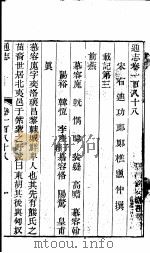 通志卷一百八十八
宋右迪功郎鄭樵漁仲撰
載記第三
前燕
慕容廆 皝 儁 暐 裴嶷 高瞻 慕容翰
陽裕 韓恆 李產 慕容恪 陽騖 皇甫
真
慕容廆字奕洛瓌昌黎棘城鮮卑人也其先有熊氏之
苗裔世居北夷邑于紫蒙之野號曰東胡其後與匈奴
通志 卷一百八十八